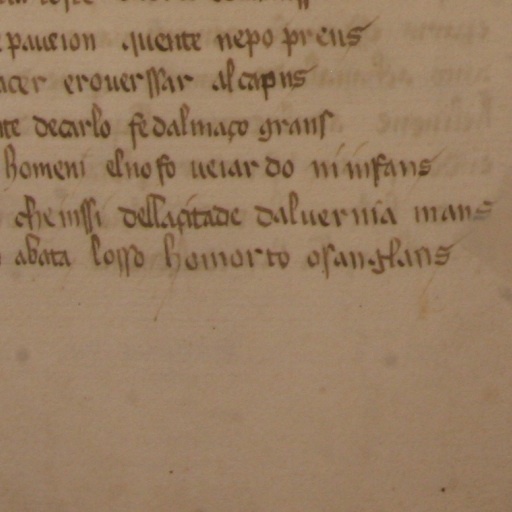 paueion quente nepo prens
acer erouerssar alcapns
nte decarlo fe dalmaço grans
homeni eluo fo ueiar do ni infans
che inssi dellaçitade daluernia mans
abata losso homorto osanglans